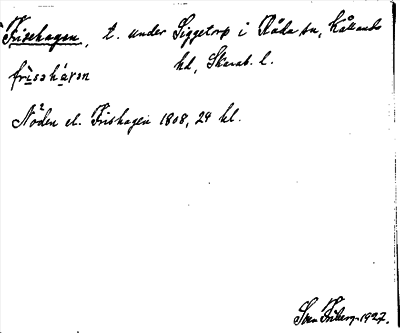 Frisehagen, t. under Siggetorp i Råda sn, Kållands
hd, Skarab. l.
Nöden el. Frishagen 1808, 29 hl.
Sven Friberg 1927.